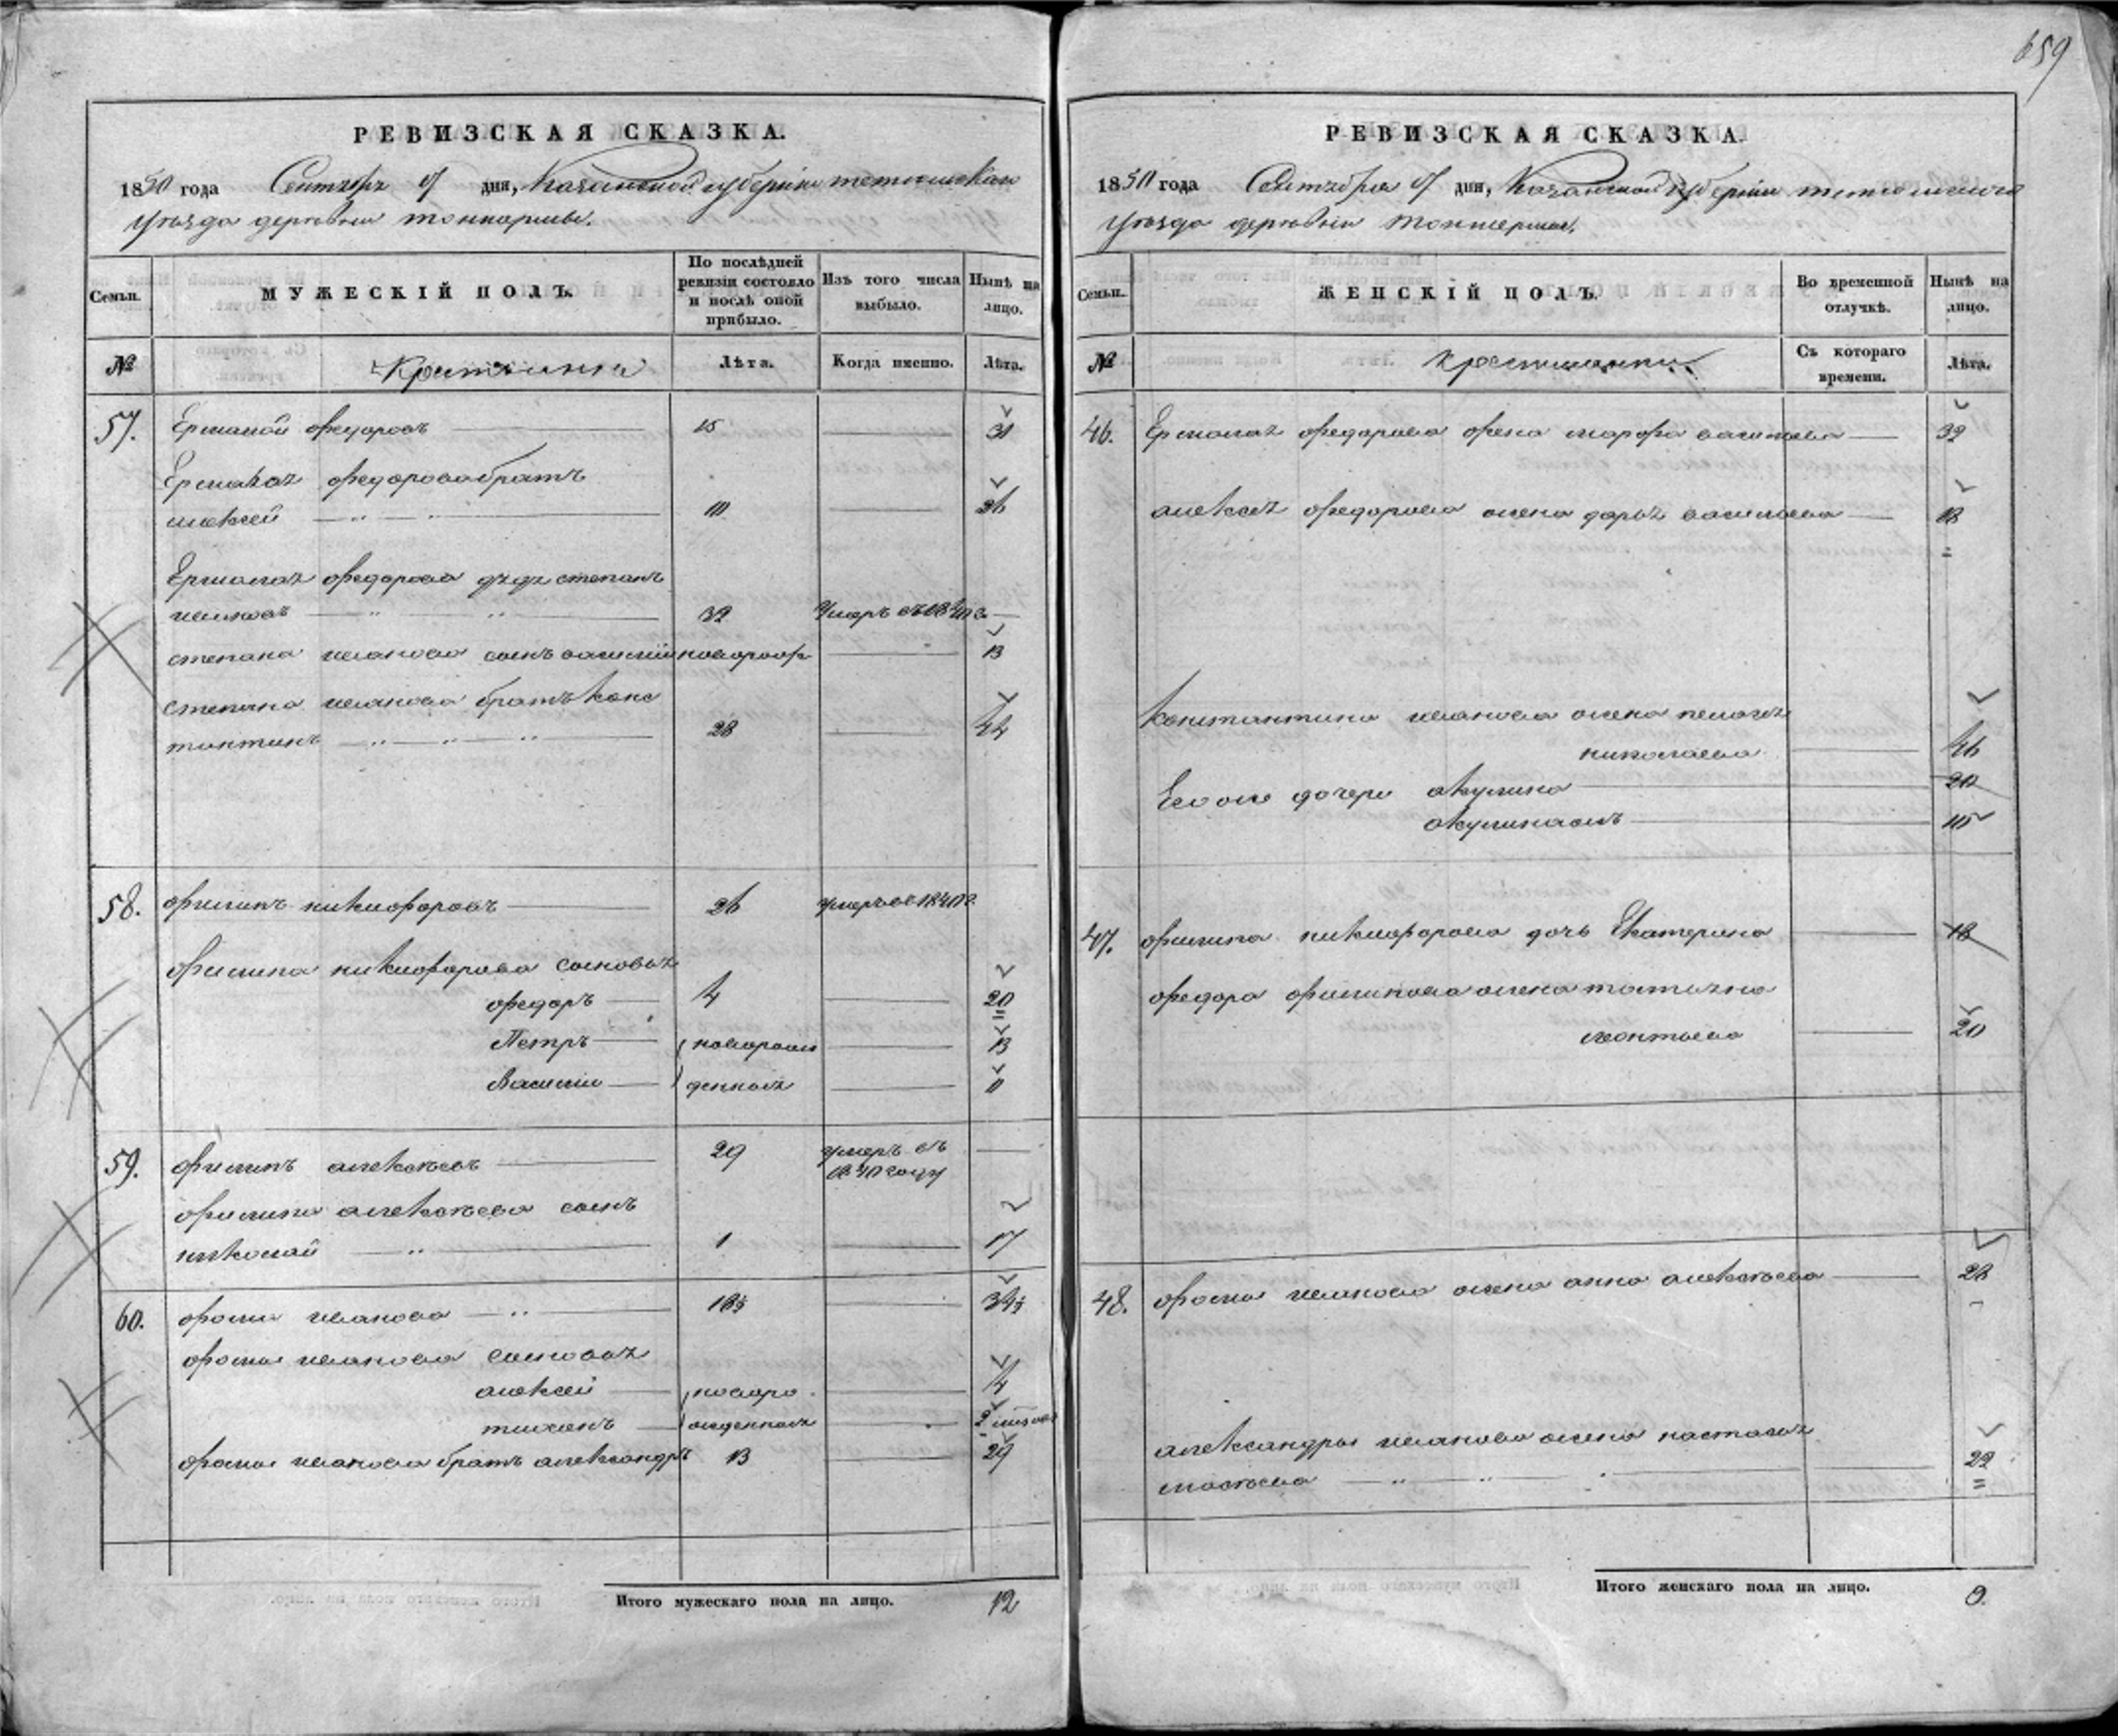 659
РЕВИЗСКАЯ СКАЗКА.
1850 года Сентября 7 дня, Казанской губернии тетюшскаго
уезда деревни
Семьи.
МУЖЕСКІЙ ПОЛЪ.
По послѣдней ревизіи состояло и послѣ оной прибыло.
Изъ того числа выбыло.
Нынѣ на лицо.
№
Крестьяне
Лѣта.
Когда именно.
Лѣта.
57. Ермолай федоровъ 15 31
Ермолая федорова братъ
алексей 10 26
Ермолая федорова дядя степанъ
ивановъ 32 умеръ въ 1840 г.
степана иванова сынъ василий новорож 13
степана иванова братъ конс
тантинъ 28 44
58. филипъ никифоровъ 26 умеръ в 1840 г.
филипа никифорова сыновья
федоръ 4 20
Петръ новорож 13
Василий денные 11
59. филипъ алексѣевъ 29 умеръ въ
1840 году
филипа алексѣева сынъ
николай 1 17
60. фома иванова 18½ 34½
фомы иванова сыновья
алексей новоро 4
тихонъ жденные 2
фомы иванова братъ александръ 13 29
Итого мужескаго пола на лицо. 12
РЕВИЗСКАЯ СКАЗКА.
1850 года Сентября 7 дня, Казанской губернии тетюшскаго
уезда деревни
Семьи.
ЖЕНСКІЙ ПОЛЪ.
Во временной отлучкѣ.
Нынѣ на лицо.
№
крестьянки
Съ котораго времени.
Лѣта.
46. Ермолая федорова жена марфа васильева 32
алексея федорова жена дарья васильева 18
константина иванова жена пелагея
николаева 46
Его же дочери акулина 20
акулина жъ 15
47. филипа никифорова дочь Екатерина 18
федора филипова жена татьяна
леонтьева 20
48. фомы иванова жена анна алексѣева 28
александры иванова жена настасья
22
Итого женскаго пола на лицо. 9.